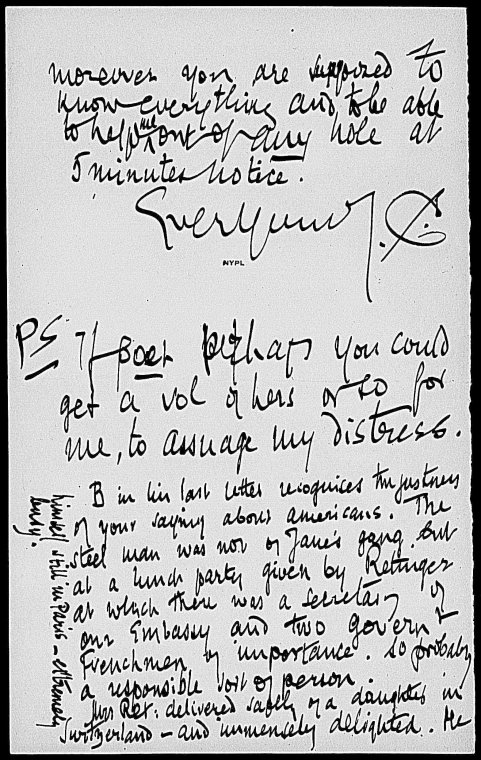 moreover you are supposed to
know everything and to be able
to help me out of any hole at
5 minutes notice.
Ever yours J.C.
NYPL
PS If poet perhaps you could
get a vol of hers or so for
me, to assuage my distress.
B in his last letter recognizes the justness
of your saying about americans. The
steel man was not of Jane's gang. but
at a lunch party given by Retinger
at which there was a secretary of
our Embassy and two Govern t
Frenchmen of importance. So probably
a responsible sort of person.
Mrs Ret: delivered safely of a daughter in
Switzerland – and immensely delighted. He
himself still in Paris – extremely
busy.